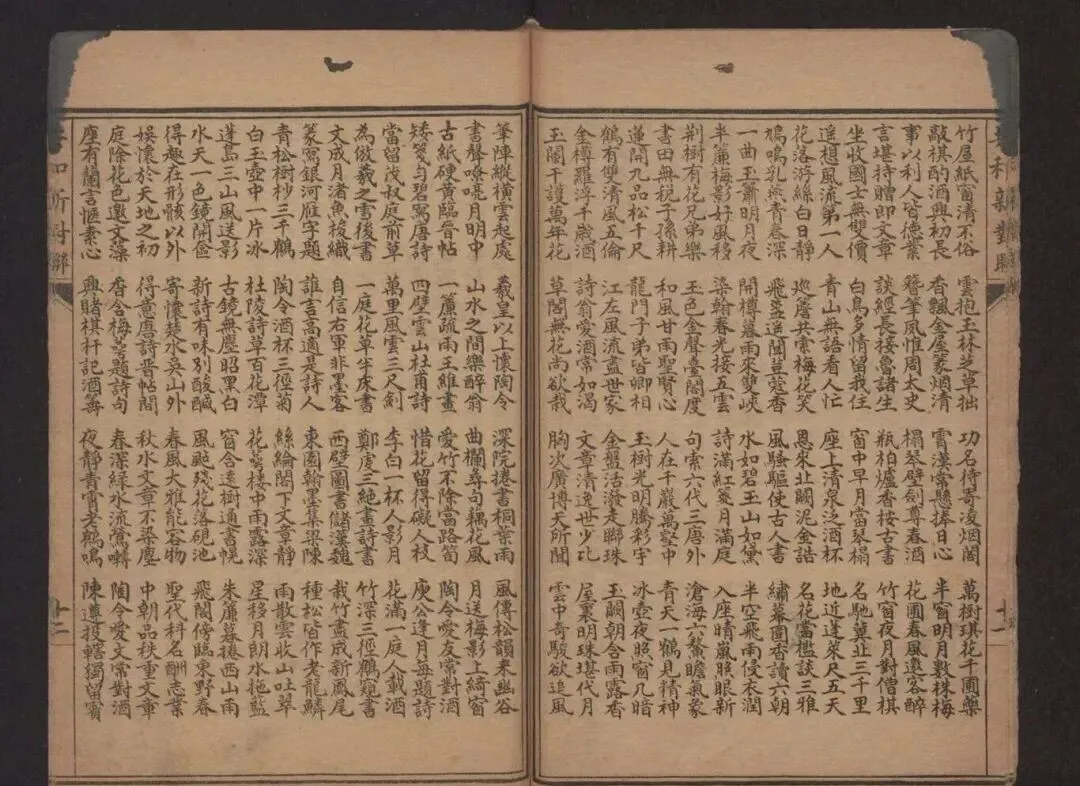 竹屋紙窗清不俗 雲抱玉林芝草拙 功名待寄凌烟閣 萬樹琪花千圃樂
敲棋酌酒興初長 香飄金屋篆烟清 霄漢常懸捧日心 半窗明月數株梅
事以利人皆德業 簪筆風惟周太史 榻琴壁劍尊春酒 花圃春風邀客醉
言堪持贈即文章 談經長接魯諸生 瓶柏爐香按古書 竹窗夜月對僧棋
坐收國士無雙價 白鳥多情留我住 窗中早月當琴榻 名馳冀北三千里
遥想風流第一人 青山無語看人忙 座上清泉泛酒杯 地近蓬萊尺五天
花落游絲白日靜 巡簷共索梅花笑 恩來北闕泥金誥 名花當檻談三雅
鳩鳴乳燕青春深 飛盞遥聞荳蔻香 風騷驅使古人書 繡幕圍香讀六朝
一曲玉簫明月夜 開樽暮雨來雙峽 水如碧玉山如黛 半空飛雨侵衣潤
半簾梅影好風移 染翰春光接五雲 詩滿紅箋月滿庭 入座晴嵐照眼新
荆樹有花兄弟樂 玉色金聲臺閣度 句索六代三唐外 滄海六鰲瞻氣象
書田無税子孫耕 和風甘雨聖賢心 人在千巖萬壑中 青天一鶴見精神
蓮開九品松千尺 龍門子弟皆卿相 玉樹光明騰彩宇 冰壺夜照窗几暗
鶴有雙清風五倫 江左風流盡世家 金盤活潑走瑯珠 玉闕朝含雨露香
金樽羅浮千歲酒 詩翁愛酒常如渴 文章清逸世少北 屋裏明珠堪代月
玉闌干護萬年花 草閣無花尚欲栽 胸次廣博天所開 雲中奇駿欲追風
十一
筆陣縱横雲起處 羲皇以上懷陶令 深院捲書桐葉雨 風傳松韻來幽谷
書聲嘹喨月明中 山水之間樂醉翁 曲欄尋句藕花風 月送梅影上綺窗
古紙硬黄臨晉帖 一簾疏雨王維畫 愛竹不除當路笱 陶令愛友常對酒
矮箋勻碧寫唐詩 四壁雲山杜甫詩 惜花留得礙人枝 庾公逢月每題詩
當留茂叔庭前草 萬里風雲三尺劍 李白一杯人影月 花滿一庭人載酒
為倣羲之雪後書 一庭花草半床書 鄭虔三絶畫詩書 竹深三徑鶴窺書
文成月渚魚梭織 自信右軍非墨客 西壁圖書儲漢魏 栽竹盡成新鳳尾
篆寫銀河雁字題 誰言高適是詩人 東園翰墨集梁陳 種松皆作老龍鱗
青松樹杪三千鶴 陶令酒杯三徑菊 絲綸閣下文章靜 雨散雲收山吐翠
白玉壺中一片冰 杜陵詩草百花潭 花萼樓中雨露深 星移月朗水拖藍
蓬島三山風送影 古鏡無塵昭黑白 窗含遠樹通書幌 朱簾暮捲西山雨
水天一色鏡開奩 新詩有味別酸鹹 風颭殘花落硯池 飛閣傍臨東野春
得趣在形骸以外 寄懷楚水吳山外 春風大雅能容物 聖代科名酬志業
娱懷於天地之初 得意唐詩晋帖間 秋水文章不染塵 中朝品秩重文章
庭除花色邀文藻 香含梅萼題詩句 春深緑水流鶯囀 陶令愛文常對酒
座有蘭言愜素心 興賭棋枰記酒籌 夜靜青霄老鶴鳴 陳遵投轄獨留賓
十二